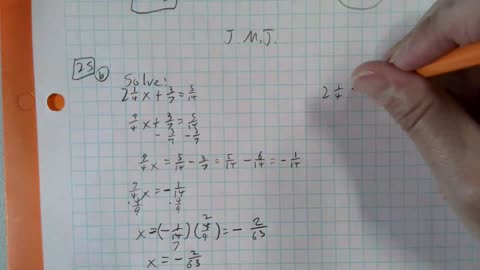 J.M.J.
25 b
Solve:
2 1/4 x + 3/7 = 5/14
2 1/4
9/4 x + 3/7 = 5/14
- 3/7 - 3/7
9/4 x = 5/14 - 3/7 = 5/14 - 6/14 = - 1/14
9/4 x = - 1/14
· 4/9 · 4/9
x = (- 1/14)(4/9) = - 2/63
7 2
x = - 2/63